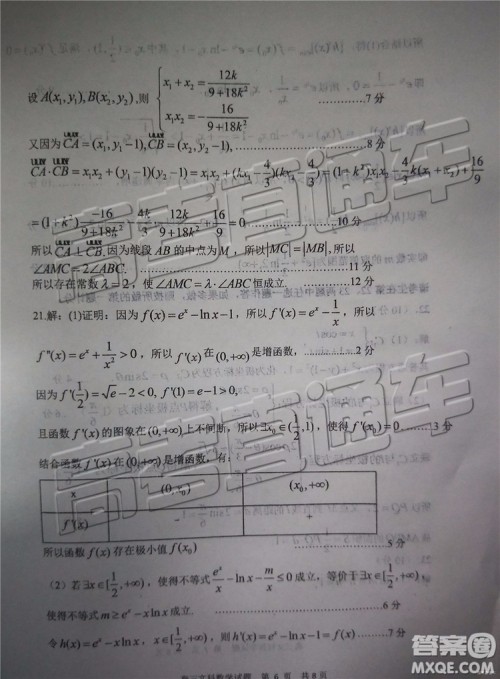 设 A(x₁,y₁),B(x₂,y₂),则 { x₁+x₂=12k/(9+18k²)
x₁x₂=-16/(9+18k²) …………7 分
又因为 CA=(x₁,y₁-1),CB=(x₂,y₂-1), …………8 分
CA·CB=x₁x₂+(y₁-1)(y₂-1)=x₁x₂+(kx₁-4/3)(kx₂-4/3)=(1+k²)x₁x₂-4/3k(x₁+x₂)+16/9
=(1+k²)-16/(9+18k²)-4k/3·12k/(9+18k²)+16/9=0 …………10 分
所以 CA⊥CB.因为线段 AB 的中点为 M，所以|MC|=|MB|,所以
∠AMC=2∠ABC. …………11 分
所以存在常数 λ=2，使 ∠AMC=λ·∠ABC 恒成立. …………12 分
21.解：(1)证明：因为 f(x)=eˣ-ln x-1，所以 f'(x)=eˣ-1/x，所以
f''(x)=eˣ+1/x²>0，所以 f'(x) 在 (0,+∞) 上是增函数，…………2 分
因为 f'(1/2)=√e-2<0, f'(1)=e-1>0,
且函数 f'(x) 的图象在 (0,+∞) 上不间断，所以 ∃x₀∈(1/2,1)，使得 f'(x₀)=0. ……3 分
结合函数 f'(x) 在 (0,+∞) 是增函数，有：
x (0,x₀) (x₀,+∞)
f'(x) - +
所以函数 f(x) 存在极小值 f(x₀) …………5 分
（2）若 ∃x∈[1/2,+∞)，使得不等式 eˣ/x-ln x-m/x≤0 成立，等价于 ∃x∈[1/2,+∞)，
使得不等式 m≥eˣ-x ln x 成立. …………6 分
令 h(x)=eˣ-x ln x，x∈[1/2,+∞)，则 h'(x)=eˣ-ln x-1=f(x)
高三文科数学试题 第 6 页 共 8 页
高考直通车
高考直通车
高考直通车
答案圈
MXQE.COM